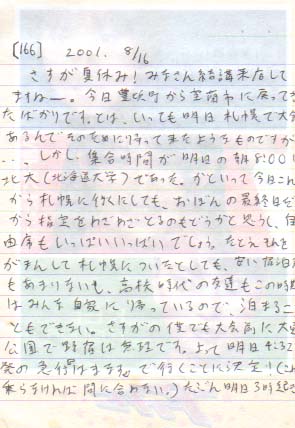 [166] 2001. 8/16
さすが夏休み!みなさん結講来店して
ますねー。今日豊浜町から室蘭市に戻ってき
たばかりです。とは、いっても明日札幌で大会
あるんでそのために帰ってきたようなものですが
…。しかし、集合時間が明日の朝8:00に
北大(北海道大学)であった。かといって今日これ
から札幌に行くにしても、おぼんの最終日だ
から指定をわざわざとるのもどうかと思うし、自
由席もいっぱいいっぱいでしょう。たとえそれを
がまんして札幌についたとしても、安い宿泊
もありないし、高校時代の友達もこの時期
はみんな自家に帰っているので、泊まるこ
ともできない。さすがの僕でも大会前に大通
公園で野宿は無理です。よって明日
発の急行はまなすで行くことに決定!(これ
乗らなければ間に合わない。)たぶん明日3時起き